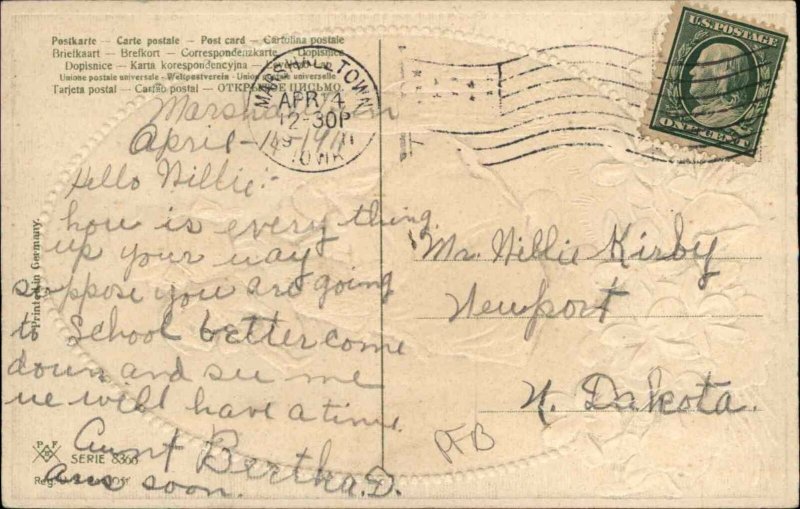 Postkarte - Carte postale - Post card - Cartolina postale
Briefkaart - Brefkort - Correspondenzkarte - Dopisnice
Dopisnice - Karta korespondencyjna -
Unione postale universale - Weltpostverein - Union postale universelle
Tarjeta postal - Cartão postal - ОТКРЫТОЕ ПИСЬМО
MARSHALLTOWN
APR 4
12-30P
IOWA
U.S. POSTAGE
ONE CENT
April
Hello Willie:-
how is every thing
up your way
suppose you are going
to School better come
down and see me
we will have a time.
Aunt Bertha. D.
ans soon.
Printed in Germany.
P F B
SERIE 8366
Mr. Willie Kirby
Newport
N. Dakota.
PFB